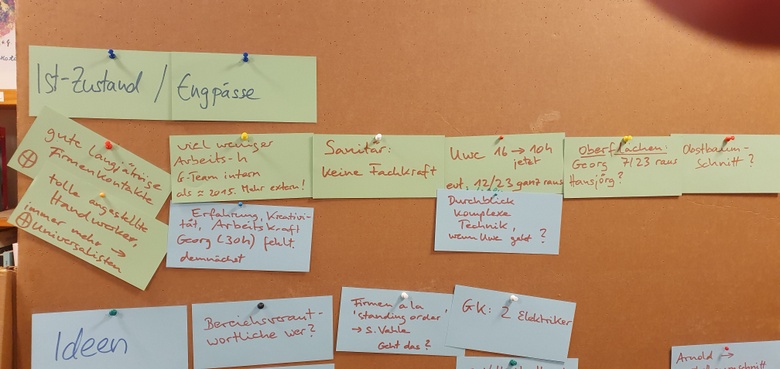 Ist-Zustand / Engpässe
⊕ gute langjährige
Firmenkontakte
tolle angestellte
Handwerker,
immer mehr →
⊕ Universalisten
viel weniger
Arbeits-h
G-Team intern
als ≈ 2015. Mehr extern!
Erfahrung, Kreativi-
tät, Arbeitskraft
Georg (30h) fehlt
demnächst
Sanitär:
keine Fachkraft
Uwe 16 → 10h
jetzt
evt. 12/23 ganz raus
Durchblick
komplexe
Technik,
wenn Uwe geht?
Oberflächen:
Georg 7/23 raus
Hansjörg?
Obstbaum-
Schnitt?
Ideen
Bereichsverant-
wortliche wer?
Firmen à la
'standing order'
→ s. Vahle
Geht das?
GK: 2 Elektriker
Arnold →